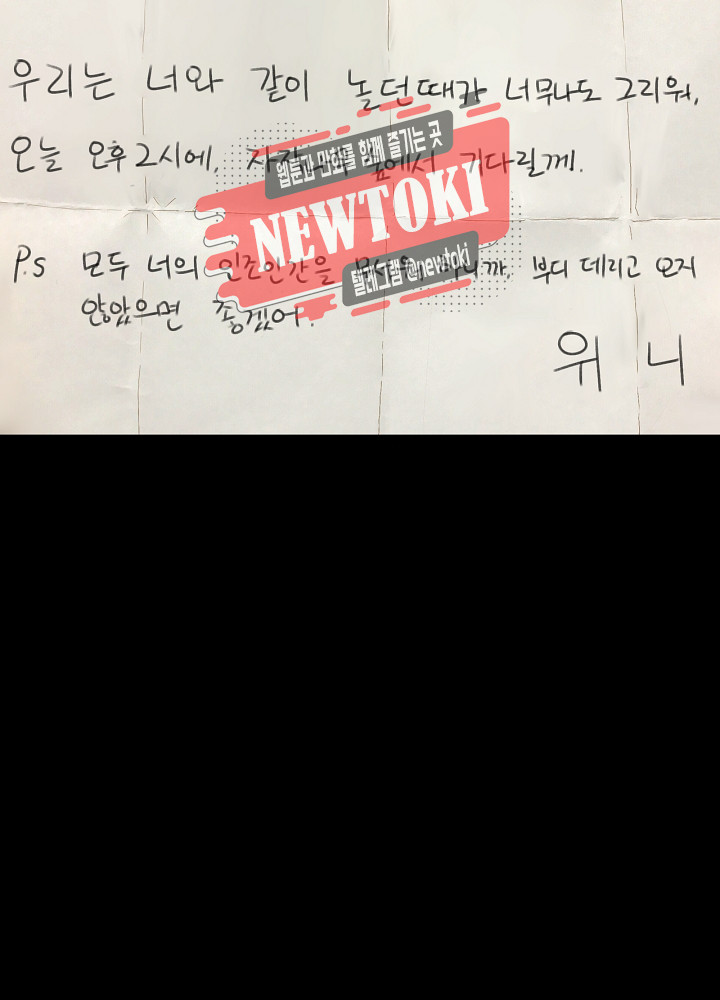 우리는 너와 같이 놀던때가 너무나도 그리워,
오늘 오후 2시에, 앞에서 기다릴께.
P.S 모두 너의 인조인간을 부디 데리고 오지
않았으면 좋겠어.
위니
웹툰과 만화를 함께 즐기는 곳
NEWTOKI
텔레그램 @newtoki